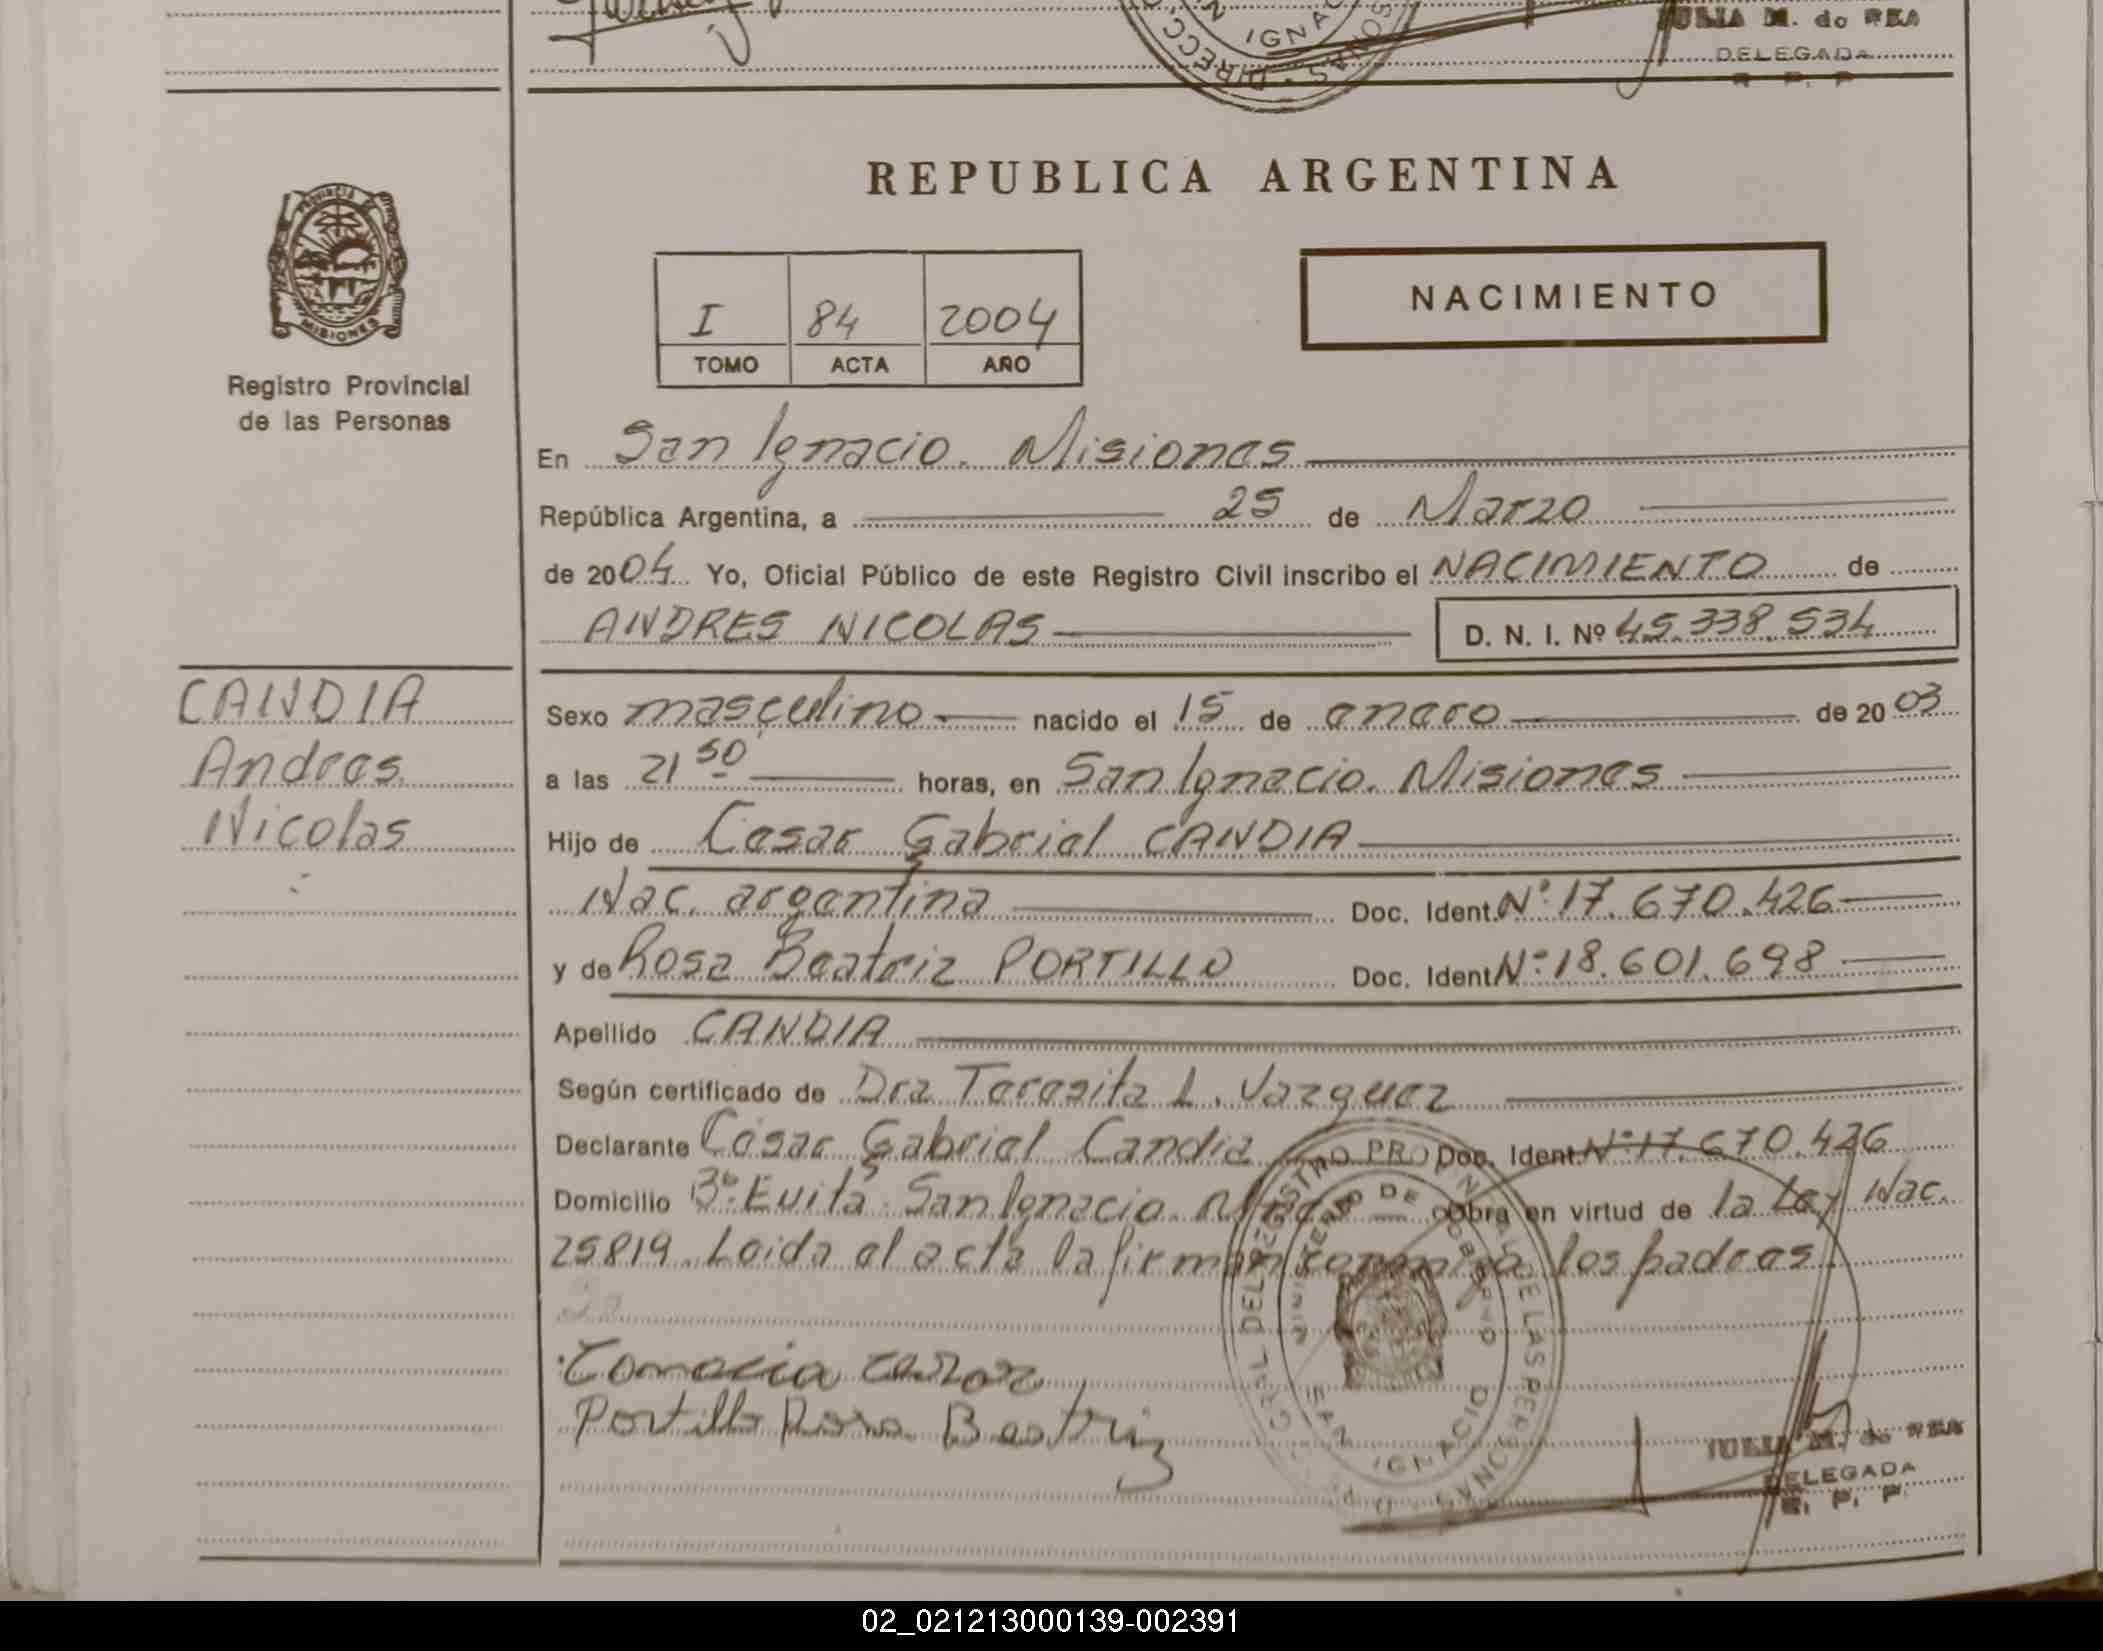 IGNAC
DIRECC
JULIA M. de REA
DELEGADA
R. P. P.
PROVINCIA DE
MISIONES
Registro Provincial
de las Personas
REPUBLICA ARGENTINA
NACIMIENTO
I 84 2004
TOMO ACTA AÑO
En San Ignacio. Misiones
República Argentina, a 25 de Marzo
de 2004 Yo, Oficial Público de este Registro Civil inscribo el NACIMIENTO de
ANDRES NICOLAS D. N. I. Nº 45.338.534
CANDIA
Andres
Nicolas
Sexo masculino nacido el 15 de enero de 2003
a las 21 50 horas, en San Ignacio. Misiones
Hijo de Cesar Gabriel CANDIA
Nac. argentina Doc. Ident. Nº 17.670.426
y de Rosa Beatriz PORTILLO Doc. Ident Nº 18.601.698
Apellido CANDIA
Según certificado de Dra Teresita L. Vazquez
Declarante César Gabriel Candia Doc. Ident. Nº 17.670.426
Domicilio Bº Evita San Ignacio. Mnes obra en virtud de la Ley Nac.
25819. Leida el acta la firman conmigo los padres
Portillo Rosa Beatriz
DEL REGISTRO PROVINCIAL DE LAS PERSONAS
MINISTERIO DE GOBIERNO
SAN IGNACIO
JULIA M. de REA
DELEGADA
R. P. P.
02_021213000139-002391